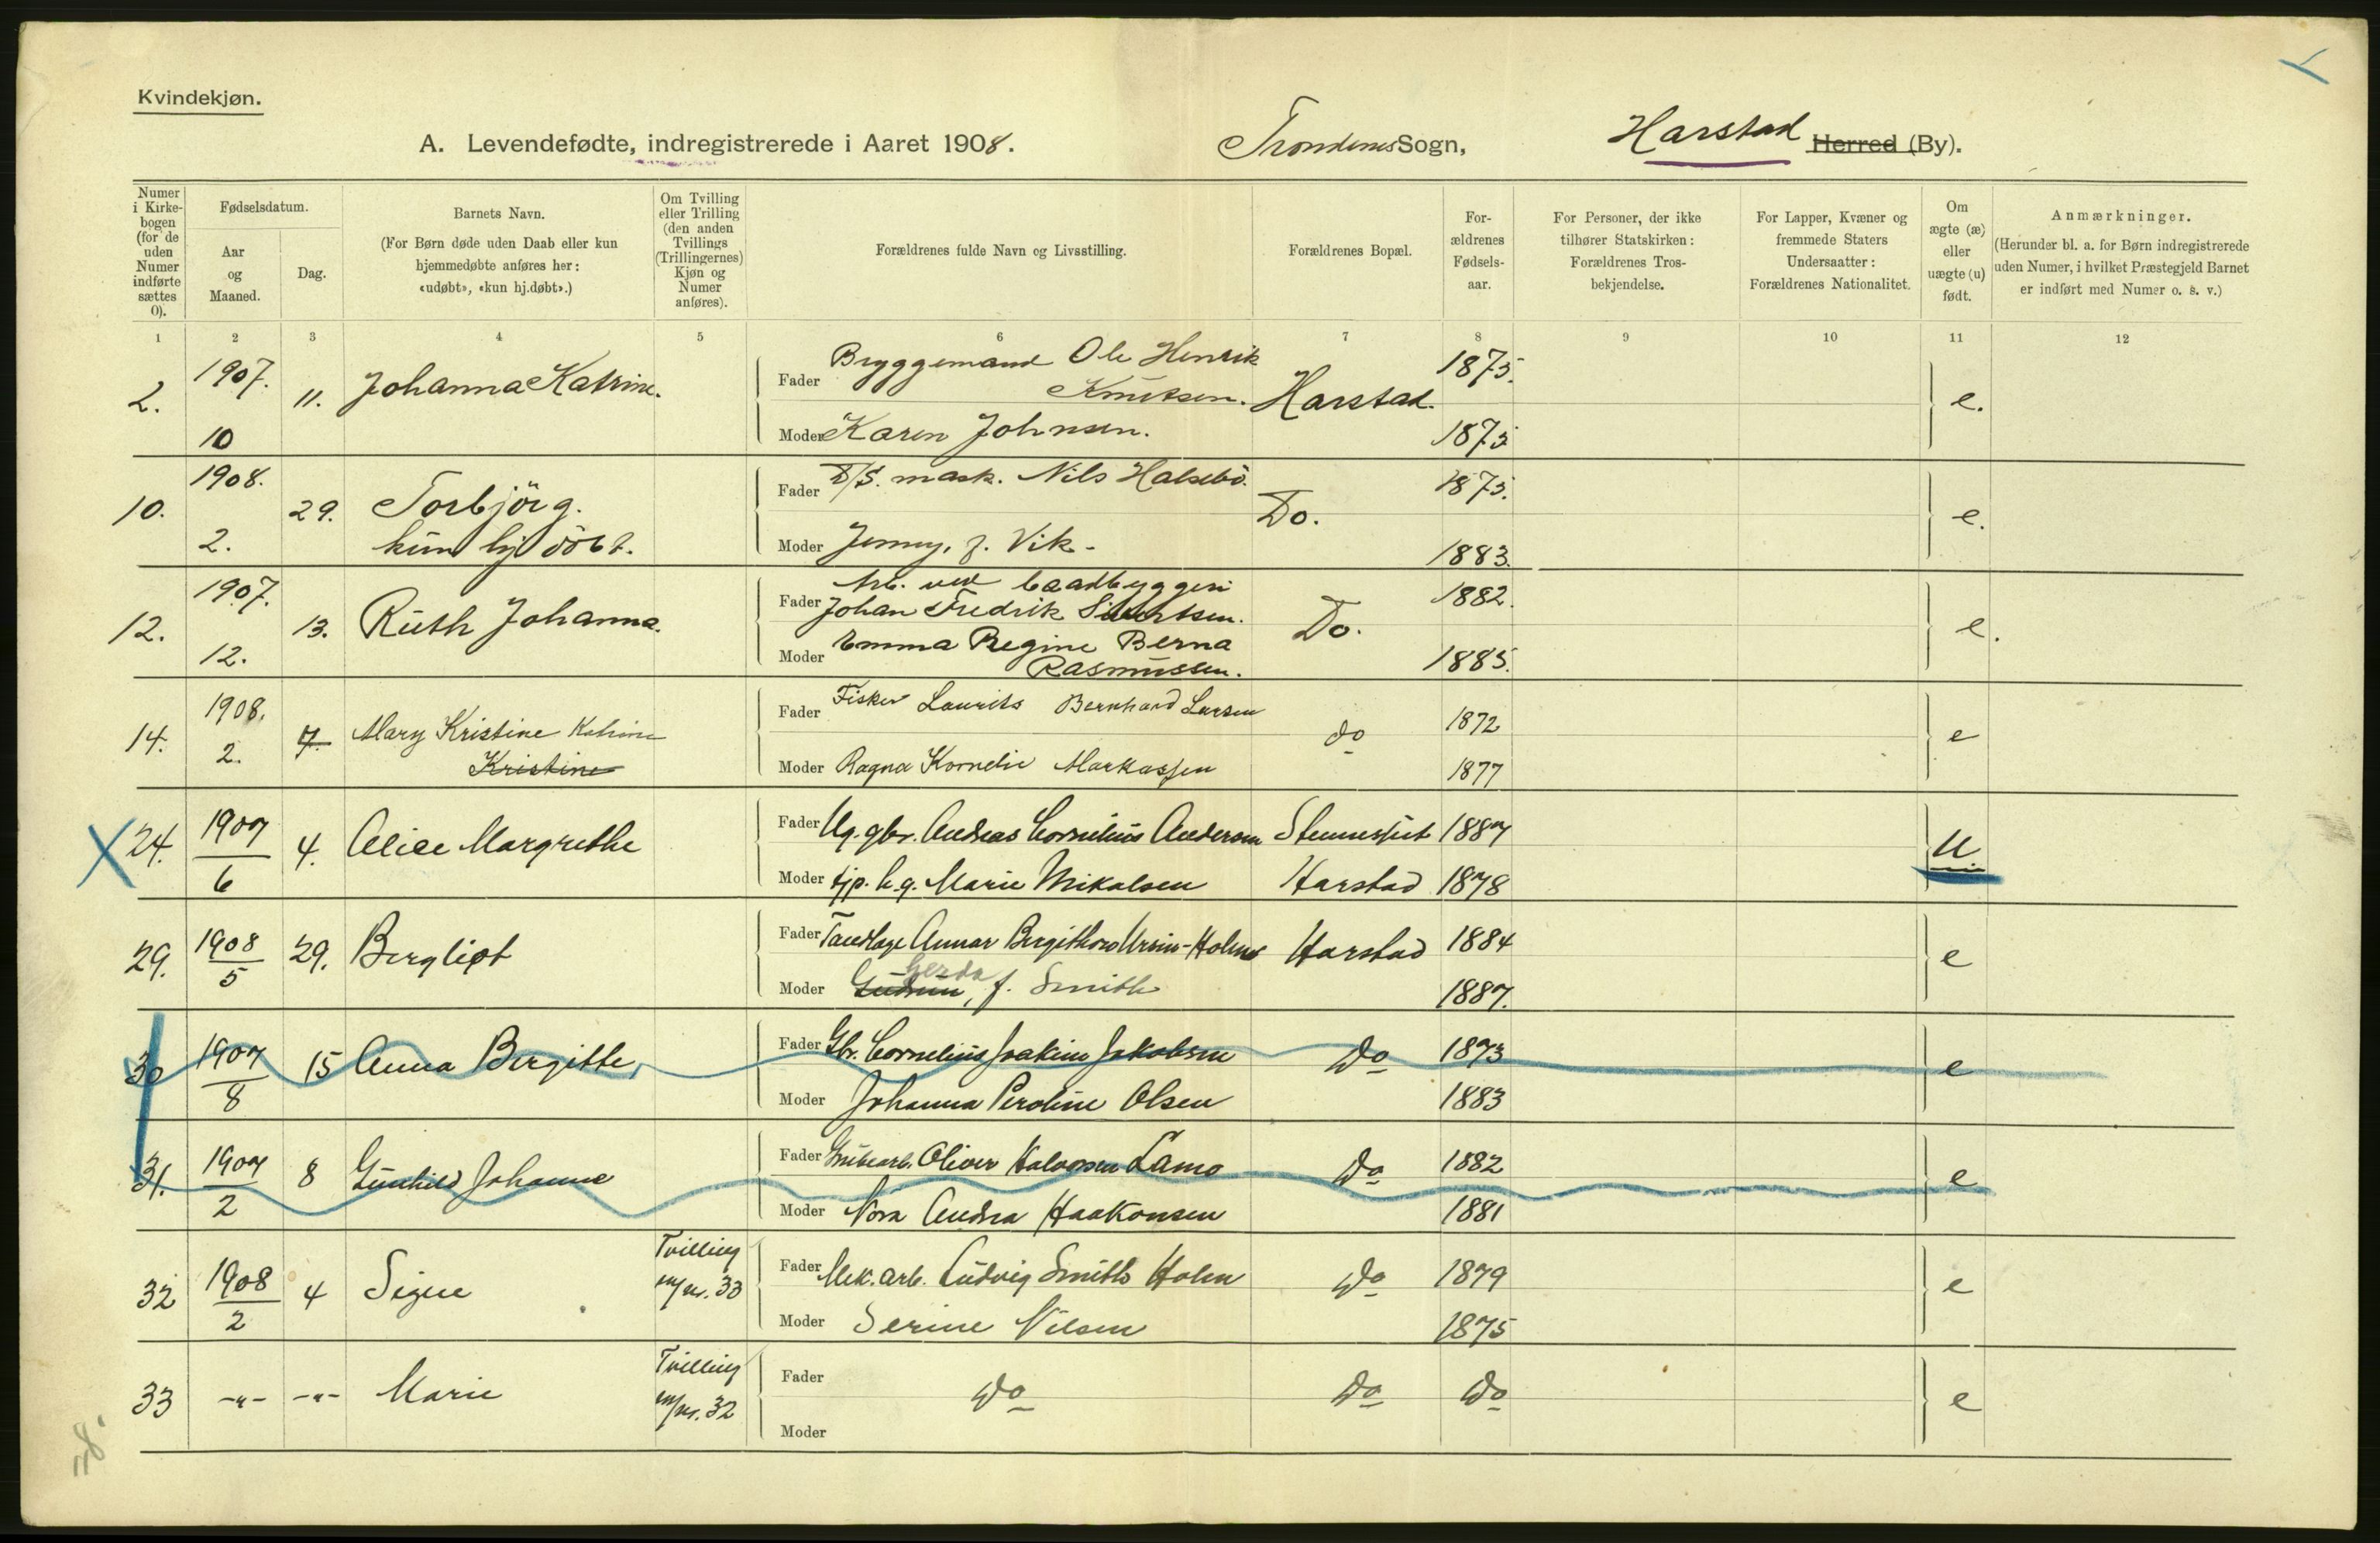 Kvindekjøn.
A. Levendefødte, indregistrerede i Aaret 1908.
Trondenes Sogn,
Harstad Herred (By).
Numer i Kirkebogen (for de uden Numer indførte sættes 0).
Fødselsdatum.
Aar og Maaned.
Dag.
Barnets Navn.
(For Børn døde uden Daab eller kun hjemmedøbte anføres her: «udøbt», «kun hj.døbt».)
Om Tvilling eller Trilling (den anden Tvillings (Trillingernes) Kjøn og Numer anføres).
Forældrenes fulde Navn og Livsstilling.
Forældrenes Bopæl.
Forældrenes Fødselsaar.
For Personer, der ikke tilhører Statskirken: Forældrenes Trosbekjendelse.
For Lapper, Kvæner og fremmede Staters Undersaatter: Forældrenes Nationalitet.
Om ægte (æ) eller uægte (u) født.
Anmærkninger.
(Herunder bl. a. for Børn indregistrerede uden Numer, i hvilket Præstegjeld Barnet er indført med Numer o. s. v.)
1 2 3 4 5 6 7 8 9 10 11 12
2. 1907. 10 11. Johanna Katrine.
Fader Bryggemand Ole Henrik Knutsen. Harstad. 1875.
Moder Karen Johnsen. 1875 e.
10. 1908. 2. 29. Torbjörg. kun hj döbt.
Fader D/S. mask. Nils Halsebö. Do. 1875.
Moder Jenny, f. Vik. 1883. e.
12. 1907. 12. 13. Ruth Johanna.
Fader Arb. ved baadbyggeri Johan Fredrik Sivertsen. Do. 1882.
Moder Emma Regine Berna Rasmussen. 1885. e.
14. 1908. 2. 7. Mary Kristine Katrine Kristine
Fader Fisker Laurits Bernhard Larsen do 1872
Moder Ragna Kornelie Markussen 1877 e
24. 1907 6 4. Alice Margrethe
Fader Ug. gbr. Andreas Cornelius Andersen 1887
Moder tjp. h.g. Marie Mikalsen Harstad 1878 U
29. 1908 5 29. Bergliot
Fader Tandlæge Annar Bergithon Ursin-Holm Harstad 1884
Moder Gudrun Gerda, f. Smith 1887. e
30 1907 8 15 Anna Bergitte
Fader Gbr. Cornelius Joakim Jakobsen Do 1873
Moder Johanna Peroline Olsen 1883 e
31. 1907 2 8 Gunhild Johanne
Fader Grubearb. Oliver Halvorsen Lamo Do 1882
Moder Nora Andrea Haakonsen 1881 e
32 1908 2 4 Signe Tvilling m/nr. 33
Fader Mek. arb. Ludvig Smith Holm Do 1879
Moder Serine Nilsen 1875 e
33 -"- -"- Marie Tvilling m/nr. 32
Fader Do Do Do
Moder e